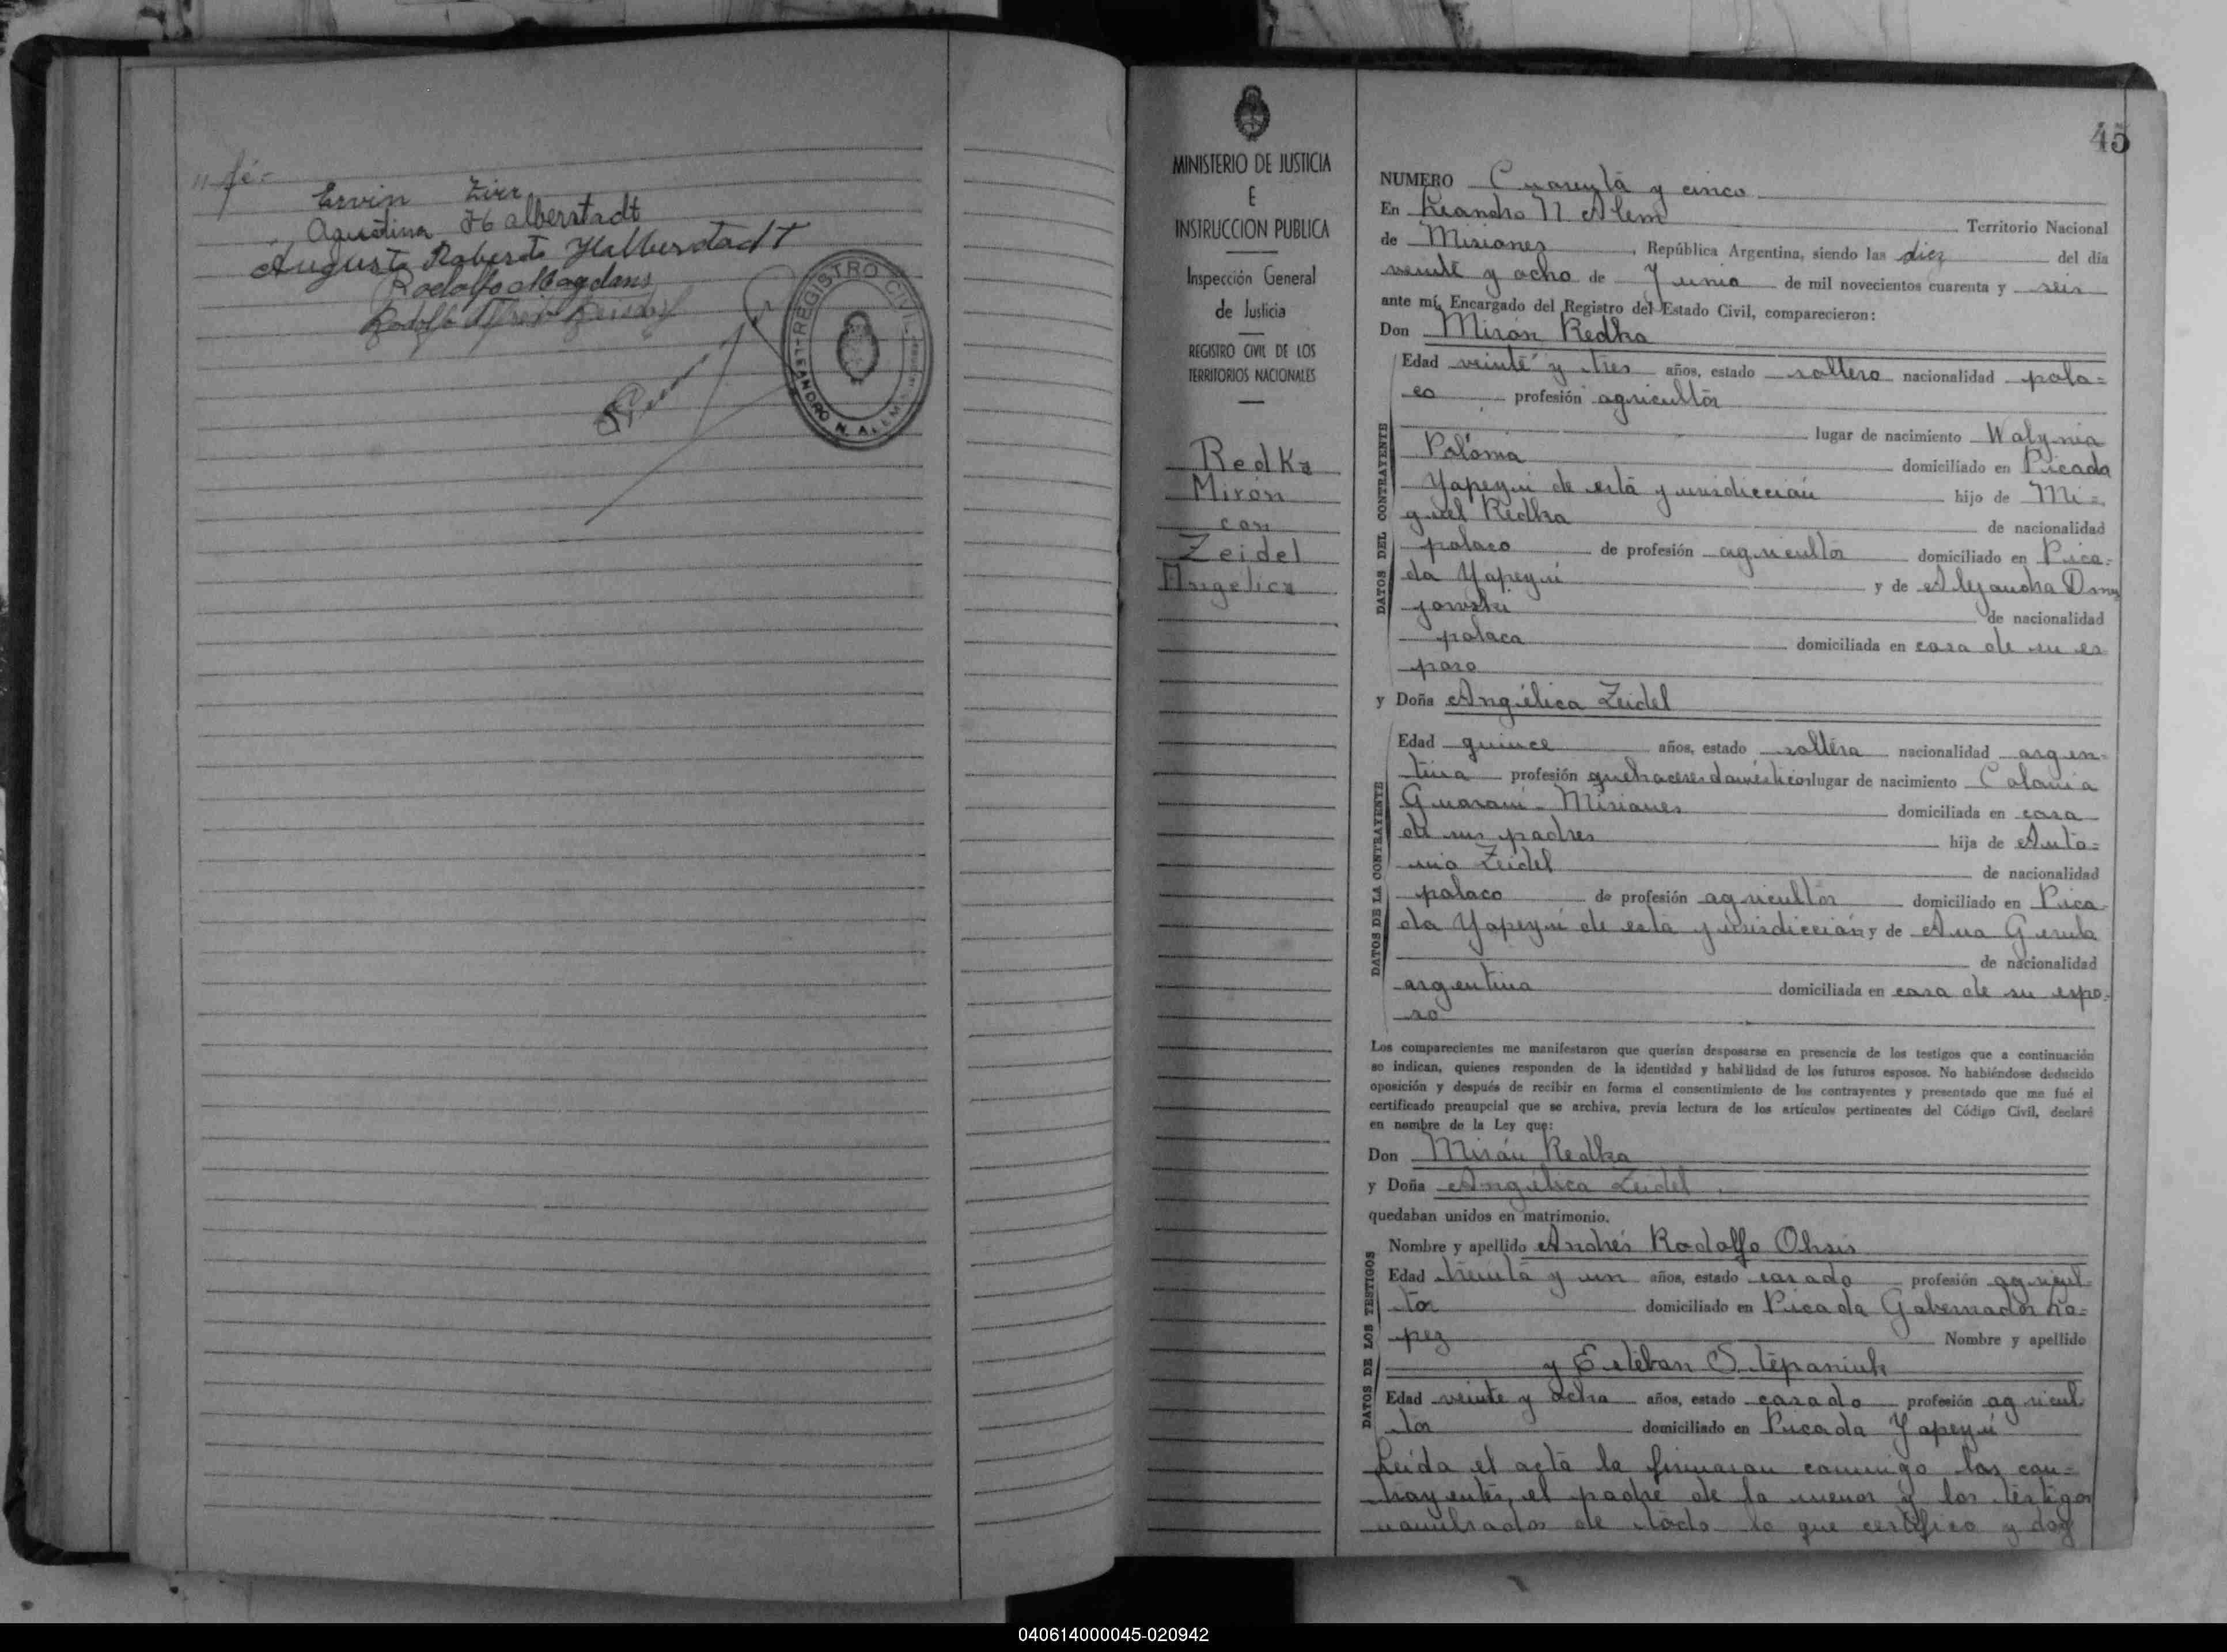 "fé.-
Ervin Zirr
Agustina Halberstadt
Augusto Roberto Halberstadt
Rodolfo Magdans
Rodolfo
REGISTRO CIVIL
LEANDRO N. ALEM
45
MINISTERIO DE JUSTICIA
E
INSTRUCCION PUBLICA
Inspección General
de Justicia
REGISTRO CIVIL DE LOS
TERRITORIOS NACIONALES
Redka
Mirón
con
Zeidel
Angelica
NUMERO Cuarenta y cinco
En Leandro N Alem Territorio Nacional
de Misiones, República Argentina, siendo las diez del día
veinte y ocho de Junio de mil novecientos cuarenta y seis
ante mí, Encargado del Registro del Estado Civil, comparecieron:
Don Mirón Redka
DATOS DEL CONTRAYENTE
Edad veinte y tres años, estado soltero nacionalidad pola=
co profesión agricultor
lugar de nacimiento Wolynia
Polonia domiciliado en Picada
Yapeyú de esta jurisdicción hijo de Mi=
guel Redka de nacionalidad
polaco de profesión agricultor domiciliado en Pica=
da Yapeyú y de Alejandra Dmy
jowski de nacionalidad
polaca domiciliada en casa de su es
poso
y Doña Angélica Zeidel
DATOS DE LA CONTRAYENTE
Edad quince años, estado soltera nacionalidad argen=
tina profesión quehaceres domésticos lugar de nacimiento Colonia
Guaraní - Misiones domiciliada en casa
de sus padres hija de Anto=
nio Zeidel de nacionalidad
polaco de profesión agricultor domiciliado en Pica
da Yapeyú de esta jurisdicción y de Ana Gerula
de nacionalidad
argentina domiciliada en casa de su espo=
so
Los comparecientes me manifestaron que querían desposarse en presencia de los testigos que a continuación
se indican, quienes responden de la identidad y habilidad de los futuros esposos. No habiéndose deducido
oposición y después de recibir en forma el consentimiento de los contrayentes y presentado que me fué el
certificado prenupcial que se archiva, previa lectura de los artículos pertinentes del Código Civil, declaré
en nombre de la Ley que:
Don Mirón Redka
y Doña Angélica Zeidel.
quedaban unidos en matrimonio.
DATOS DE LOS TESTIGOS
Nombre y apellido Andrés Rodolfo Ohsis
Edad treinta y un años, estado casado profesión agricul
tor domiciliado en Picada Gobernador Lo=
pez Nombre y apellido
y Esteban Stepaniuk
Edad veinte y ocho años, estado casado profesión agricul
tor domiciliado en Picada Yapeyú
Leida el acta la firmaron conmigo los con=
trayentes, el padre de la menor y los testigos
nombrados de todo lo que certifico y doy
040614000045-020942